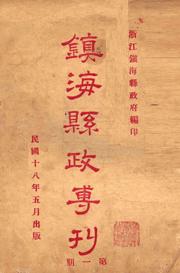 浙江鎮海縣政府編印
鎮海縣政專刊
第一期
民國十八年五月出版